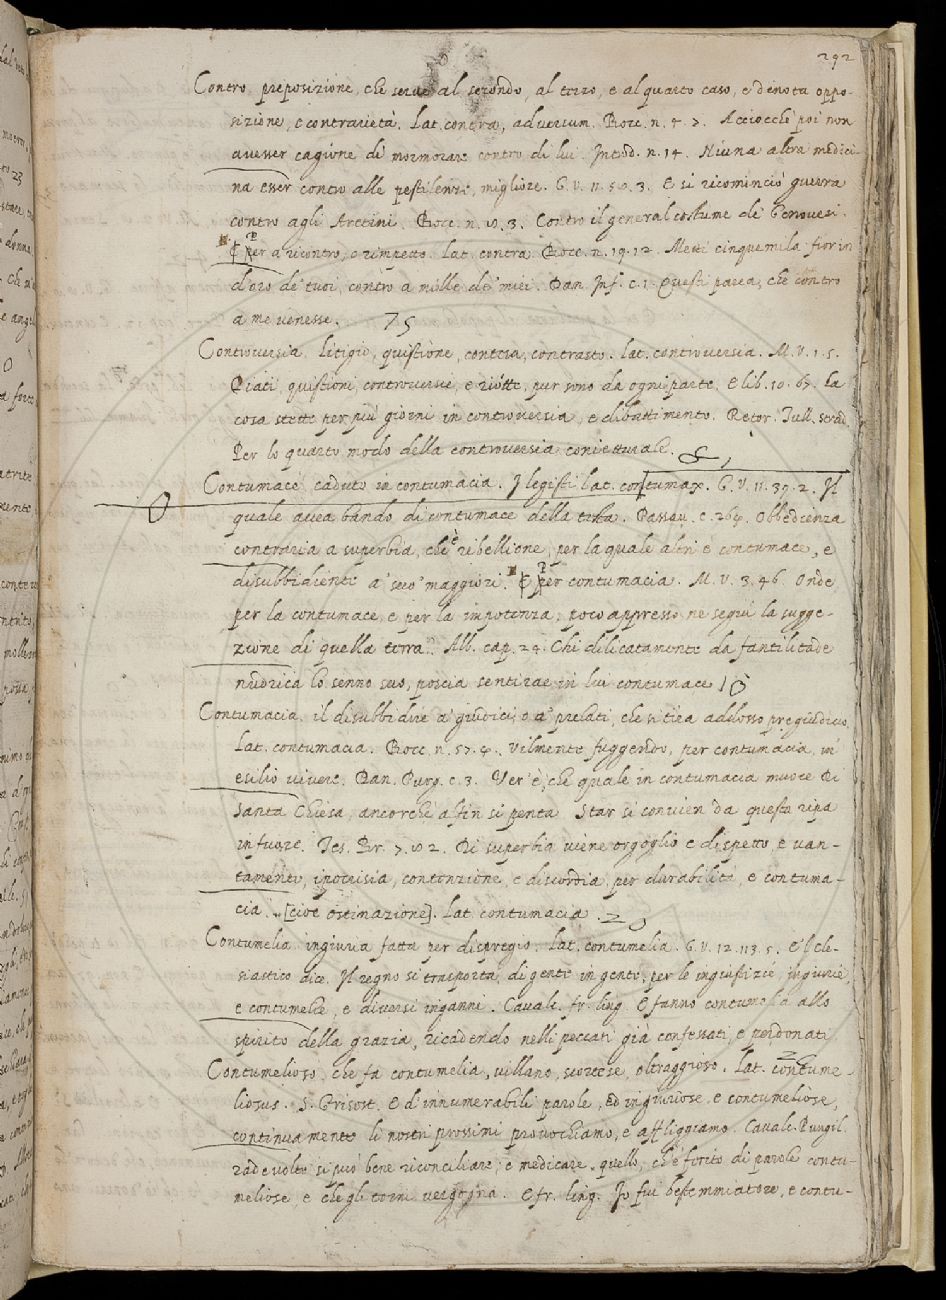 292
Contro, preposizione, che serve al secondo, al terzo, e al quarto caso, e denota oppo-
sizione, e contrarietà. Lat. contra, adversum. Bocc. n. 4. 7. Acciocchè poi non
avesser cagione di mormorare contro di lui. Introd. n. 14. Niuna altra medici-
na esser contro alle pestilenze, migliore. G. V. 11. 59. 3. E si ricominciò guerra
contro agli Aretini. Bocc. n. 10. 3. Contro il general costume de' Genovesi.
¶ Per a rincontro, e rimpetto. Lat. contra. Bocc. n. 19. 12. Metti cinquemila fiorin
d'oro de' tuoi, contro a mille de' miei. Dan. Inf. c. 1. Questi parea, che contro
a me venesse. 75
Controversia. Litigio, quistione, contesa, contrasto. Lat. controversia. M. V. 1. 5.
Piati, quistioni, controversie, e riotte, pur sono da ogni parte. E lib. 10. 67. La
cosa stette per più giorni in controversia, e dibattimento. Retor. Tull. strad.
Per lo quarto modo della controversia conietturale.
Contumace caduto in contumacia. I legisti lat. contumax. G. V. 11. 39. 2. Il
quale avea bando di contumace della . Passav. c. 264. Obbedienza
contraria a superbia, che è ribellione, per la quale altri è contumace, e
disubbidiente a' suoi maggiori. ¶ Per contumacia. M. V. 3. 46. Onde
per la contumace, e per la impotenza, poco appresso ne seguì la sugge-
zione di quella terra. Alb. cap. 24. Chi dilicatamente da fantilitade
nudrica lo senno suo, poscia sentirae in lui contumace 10
Contumacia. il disubbidire a' giudici, o a' prelati, che si tira addosso pregiudicio.
Lat. contumacia. Bocc. n. 57. 4. Vilmente fuggendo, per contumacia, in
esilio vivere. Dan. Purg. c. 3. Ver' è, che quale in contumacia muore Di
Santa Chiesa, ancorchè al fin si penta Star si convien da questa ripa
infuore. Tes. Br. 7. 82. Di superbia viene orgoglio e dispetto, e van-
tamento, ipocrisia, contenzione, e discordia, per durabilità, e contuma-
cia. [cioè ostinazione]. Lat. contumacia. 20
Contumelia. ingiuria fatta per dispregio. Lat. contumelia. G. V. 12. 113. 5. E l'Ecle-
siastico dice. Il regno si trasporta di gente in gente, per le ingiustizie, ingiurie,
e contumelie, e diversi inganni. Caval. fr. ling. E fanno contumelia allo
spirito della grazia, ricadendo nelli peccati già confessati, e perdonati
Contumelioso. che fa contumelia, villano, scortese, oltraggioso. Lat. contume-
liosus. S. Grisost. E d'innumerabili parole, ed ingiuriose, e contumeliose,
continuamente li nostri prossimi provochiamo, e affliggiamo. Caval. Pungil.
rade volte si può bene riconciliare, e medicare, quello, che è ferito di parole contu-
meliose, e che gli torni vergogna. E fr. ling. Io fui bestemmiatore, e contu-